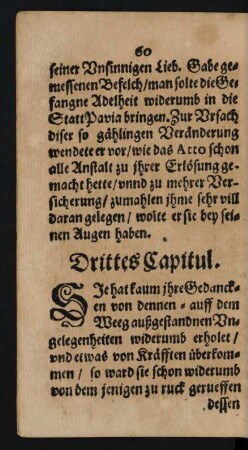 60
seiner Vnsinnigen Lieb. Gabe ge-
messenen Befelch/man solte die Ge-
fangne Adelheit widerumb in die
Statt Pavia bringen. Zur Vrsach
diser so gählingen Veränderung
wendete er vor/ wie das Atto schon
alle Anstalt zu jhrer Erlösung ge-
macht hette/ vnnd zu mehrer Ver-
sicherung/ zumahlen jhme sehr vill
daran gelegen/ wolte er sie bey sei-
nen Augen haben.
Drittes Capitul.
SIe hat kaum jhre Gedanck-
en von dennen - auff dem
Weeg außgestandnen Vn-
gelegenheiten widerumb erholet/
vnd etwas von Kräfften überkom-
men/ so ward sie schon widerumb
von dem jenigen zu ruck gerueffen
dessen